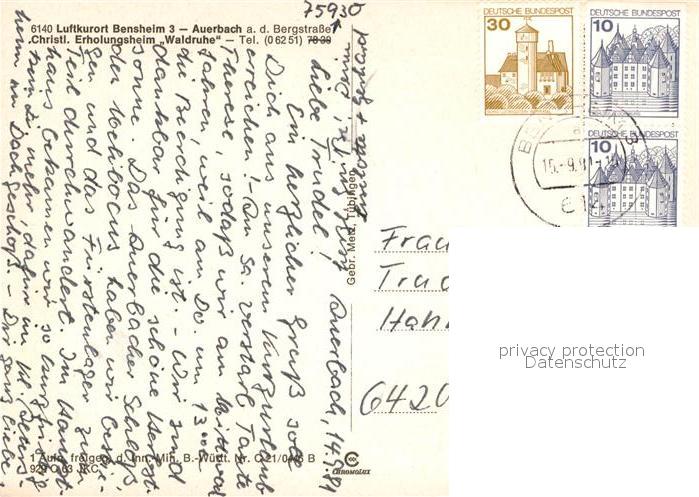 75930
6140 Luftkurort Bensheim 3 — Auerbach a. d. Bergstraße
Christl. Erholungsheim „Waldruhe" — Tel. (0 62 51) 78 39
DEUTSCHE BUNDESPOST
30
DEUTSCHE BUNDESPOST
10
DEUTSCHE BUNDESPOST
10
Auerbach, 14.9.81
Liebe Trudel!
Ein herzlicher Gruß soll
Dich aus unserem Kurzurlaub
erreichen! - Am Sa. verstarb Tante
Therese, sodaß wir am Mittwoch
fahren, weil am Do. um 13 Uhr
die Beerdigung ist. - Wir sind
dankbar für die schöne Herbst-
sonne. Das Auerbacher Schloß,
der Melibocus haben wir
und das Fürstenlager zum
Teil durchwandert. Im Haus
bekamen wir so
mehr
im Dachgeschoß. - Dir ganz liebe
Gebr. Metz, Tübingen
Frau
Trud
Hah
6420
privacy protection
Datenschutz
1 Aufn. freigeg. d. Inn.-Min. B.-Württ. Nr. C 21/04/5 B
929 C 63 JKC
CHROMOLUX